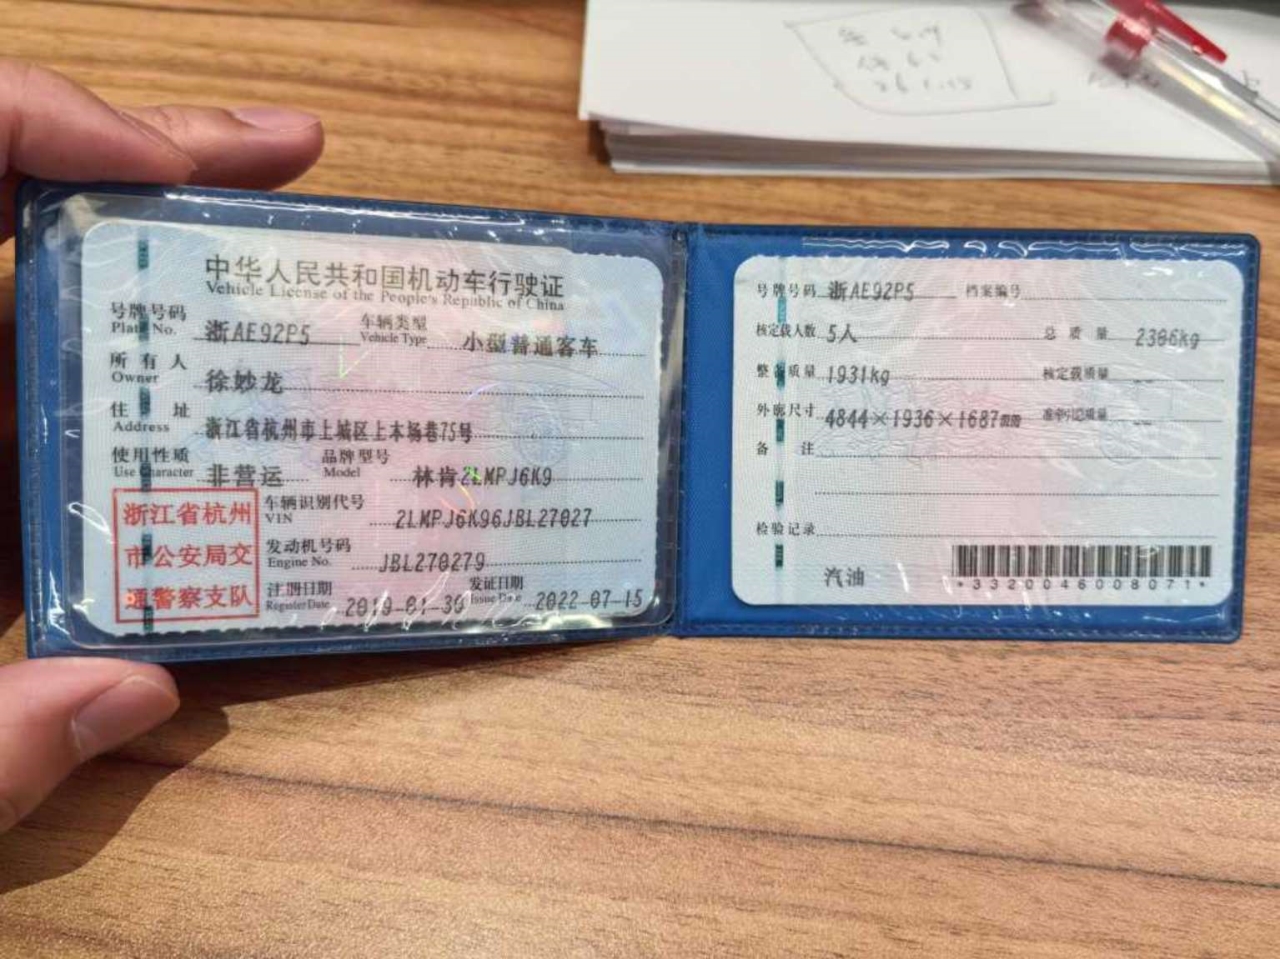 中华人民共和国机动车行驶证
Vehicle License of the People's Republic of China
号牌号码 浙AE92P5 车辆类型 小型普通客车
Plate No. Vehicle Type
所有人 徐妙龙
Owner
住址 浙江省杭州市上城区上本场巷75号
Address
使用性质 非营运 品牌型号 林肯2LMPJ6K9
Use Character Model
浙江省杭州
市公安局交
通警察支队
车辆识别代号 2LMPJ6K96JBL27027
VIN
发动机号码 JBL270279
Engine No.
注册日期 2019-01-30 发证日期 2022-07-15
Register Date Issue Date
号牌号码 浙AE92P5 档案编号
核定载人数 5人 总质量 2306kg
整备质量 1931kg 核定载质量 --
外廓尺寸 4844×1936×1687mm 准牵引总质量 --
备注
检验记录
汽油
*3320046008071*